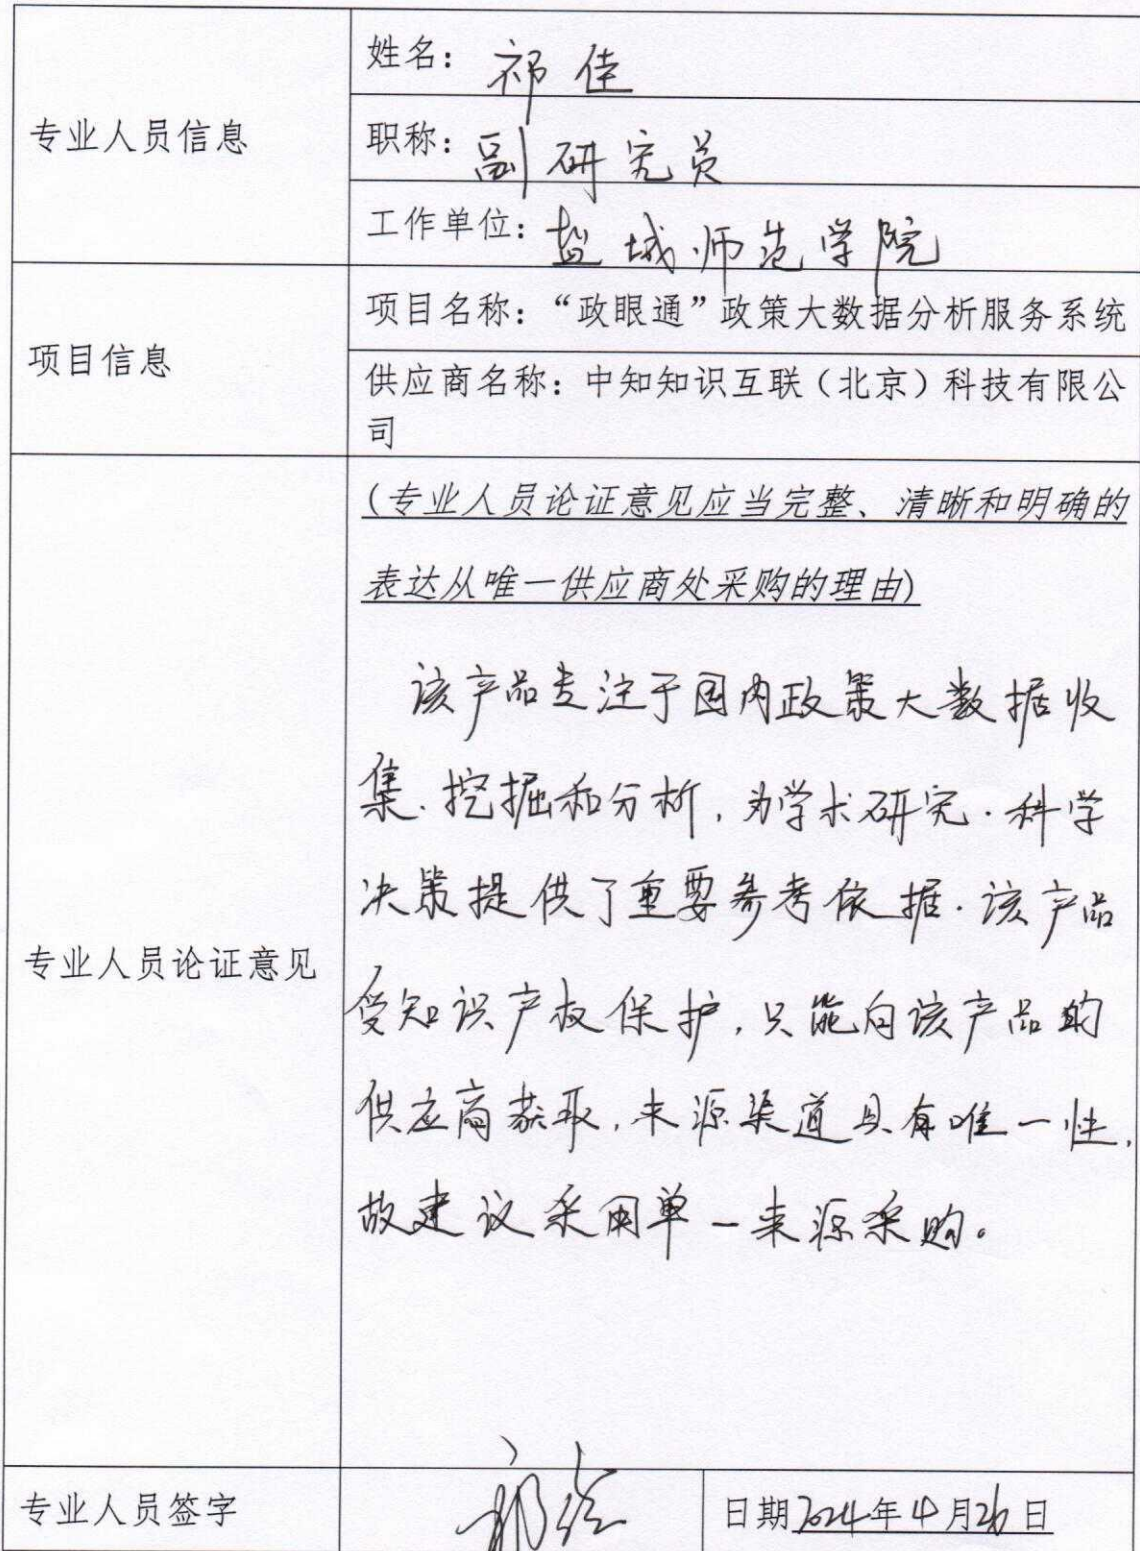 专业人员信息
姓名：祁佳
职称：副研究员
工作单位：盐城师范学院
项目信息
项目名称：“政眼通”政策大数据分析服务系统
供应商名称：中知知识互联（北京）科技有限公
司
专业人员论证意见
(专业人员论证意见应当完整、清晰和明确的
表达从唯一供应商处采购的理由)
该产品专注于国内政策大数据收
集、挖掘和分析，为学术研究、科学
决策提供了重要参考依据。该产品
受知识产权保护，只能向该产品的
供应商获取，来源渠道具有唯一性，
故建议采用单一来源采购。
专业人员签字
祁佳
日期2024年4月26日